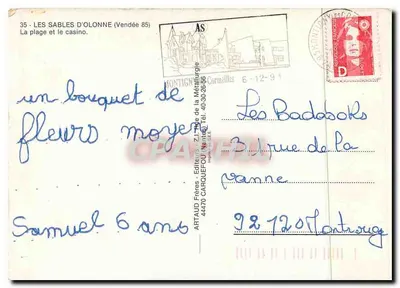 35 - LES SABLES D'OLONNE (Vendée 85)
La plage et le casino.
6-12-91
D
un bouquet de
fleurs moyen
Samuel 6 ans
ARTAUD Frères - Editeurs - Z.I. Rue de la Métallurgie
44470 CARQUEFOU Nantes Tél. 40-30-26-56
Les Badasoks
31 rue de la
vanne
92120 Montrouge